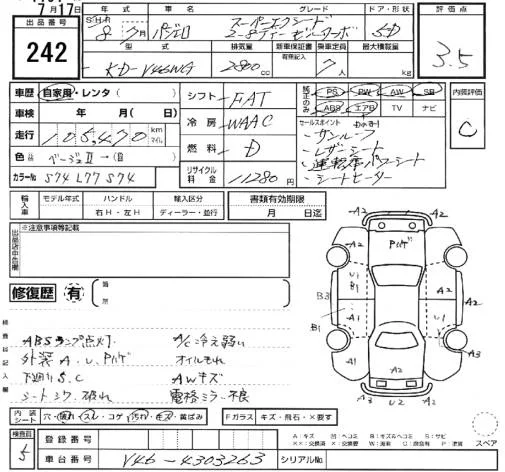 7月17日
出品番号
242
年式 車名 グレード ドア・形状 評価点
S・H・R 8年7月 パジェロ スーパーエクシード 5D 3.5
2-8ディーゼルターボ
型式 排気量 新車保証書 乗車定員 最大積載量
有無記入
KD-V46WG 2800cc 7人 kg
車歴 自家用・レンタ( )
車検 年 月( 日)
走行 105,470 km マイル
色替 ベージュII→(自
カラーNo S74 L77 S74
シフト FAT
冷房 WAAC
燃料 D
リサイクル料金 11280円
純正のみ PS PW AW SR
ABS エアB TV ナビ
セールスポイント
・サンルーフ
・レザーシート
・運転席パワーシート
・シートヒーター
内装評価
C
輸入車 モデル年式 ハンドル 輸入区分
年 右H・左H ディーラー・並行
書類有効期限
月 日迄
※注意事項等記載
修復歴 有
ABSランプ点灯 A/C冷え弱い
外装A、U、Pハゲ オイルもれ
下廻りS.C AWキズ
シートシワ 破れ 電格ミラー不良
A2 A2 A2
A2 Pハゲ A2
U1 U1
B3 A2
B1 B1
A1 U1 A3
A3 U2 A2
内装シート 穴・破れ・スレ・コゲ・汚れ・キズ・黄ばみ
Fガラス キズ・飛石・×要す
A:キズ U:ヘコミ B:キズ&ヘコミ S:サビ
スペア
検査員
5
登録番号
車台番号 V46-4303263 シリアルNo.